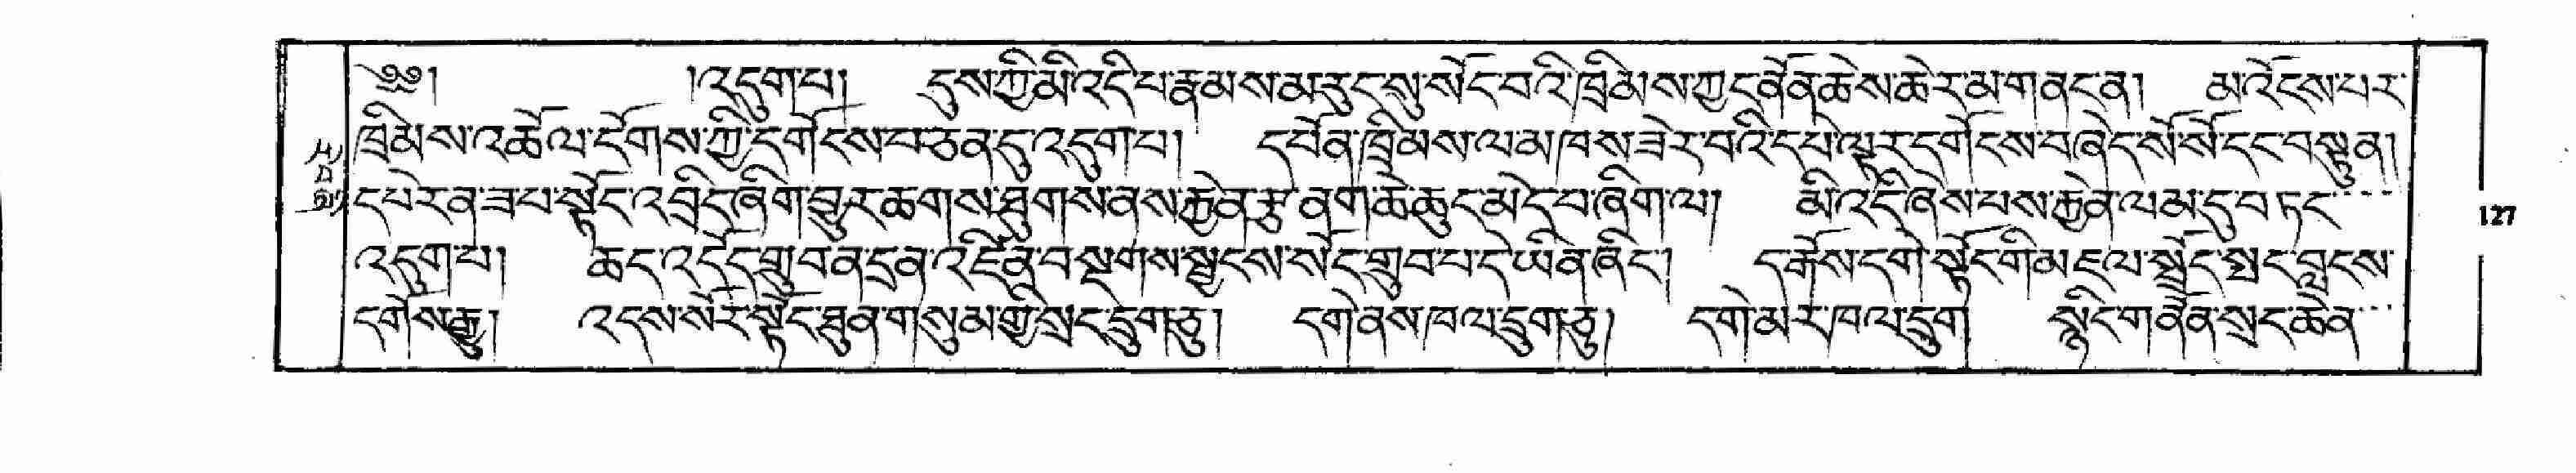 ༄༅། །འདུག་པ། དུས་ཀྱི་མི་འདི་པ་རྣམས་མ་རུང་སུ་སོང་བའི་ཁྲིམས་ཀྱང་ནོན་ཆེས་ཆེར་མ་གནང་ན། མ་འོངས་པར་
ཁྲིམས་འཆོལ་དོགས་ཀྱི་དགོངས་བཅན་དུ་འདུག་པ། དཔོན་ཁྲིམས་ལ་མ་ཁས་ཟེར་བའི་དཔེ་ལྟར་དགོངས་བཞེད་སོ་སོ་དང་བསྟུན།
དཔེར་ན་ཟབ་སྟོང་འབྲིང་ཞིག་བྱུར་ཆགས་ཐུགས་ནས་རྐྱེན་རྩ་ནག་ཆེ་ཆུང་མེད་པ་ཞིག་ལ། མི་འདི་ཞེས་པས་རྐྱེན་ལམ་དུ་བཏང་
འདུག་པ། ཆང་འདོད་གྲུབ་ན་དྲན་འཛིན་བསྔགས་སྦྱངས་སོང་གྲུབ་པ་དེ་ཡིན་ཞིང་། དགོས་དགེ་སྟོང་གི་མཇལ་སྦྱོང་སྤང་བླངས་
དགོས་རྒྱུ། འདས་སོར་སྟོང་ཐུན་གསུམ་གྱི་སྲང་དྲུག་ཅུ། དགེ་ནས་ཁལ་དྲུག་ཅུ། དགེ་མར་ཁལ་དྲུག སྙིང་གནོན་སྲང་ཆེན་
127